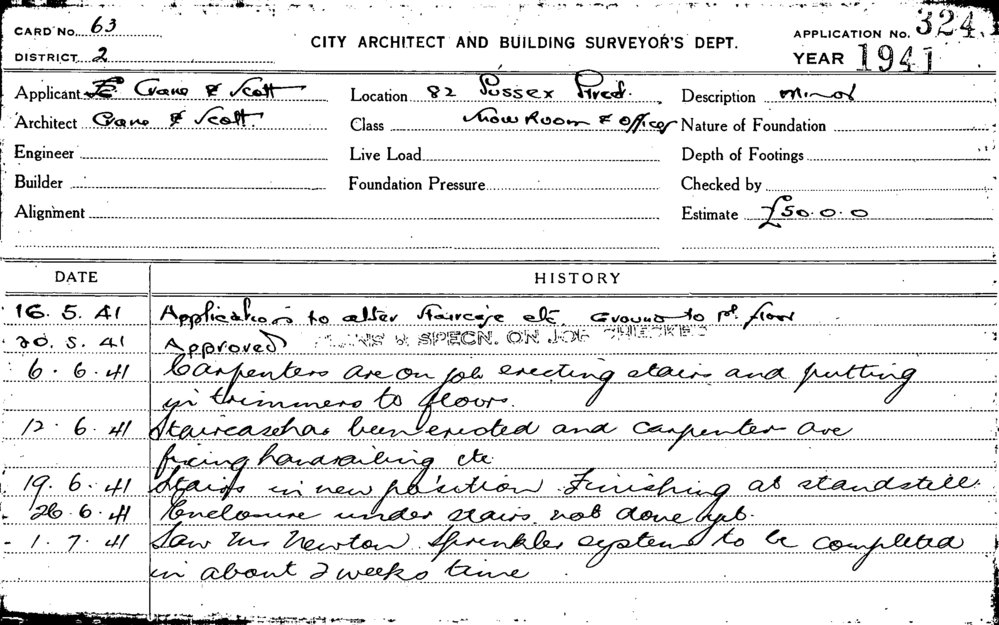 CARD No. 63
DISTRICT 2
CITY ARCHITECT AND BUILDING SURVEYOR'S DEPT.
APPLICATION No. 324.1
YEAR 1941
Applicant Crane & Scott
Location 82 Sussex Street.
Description minor
Architect Crane & Scott.
Class Show Room & offices
Nature of Foundation
Engineer
Live Load
Depth of Footings
Builder
Foundation Pressure
Checked by
Alignment
Estimate £50.0.0
DATE HISTORY
16. 5. 41 Application to alter staircase etc. Ground to 1st. floor
20. 5. 41 Approved PLANS & SPECN. ON JOB CHECKED
6. 6. 41 Carpenters are on job erecting stairs and putting
in trimmers to floors.
12. 6. 41 Staircase has been erected and carpenter are
fixing handrailing etc
19. 6. 41 Stairs in new position. Finishing at standstill.
26. 6. 41 Enclosure under stairs not done yet.
1. 7. 41 Saw Mr Newton. Sprinkler system to be completed
in about 2 weeks time